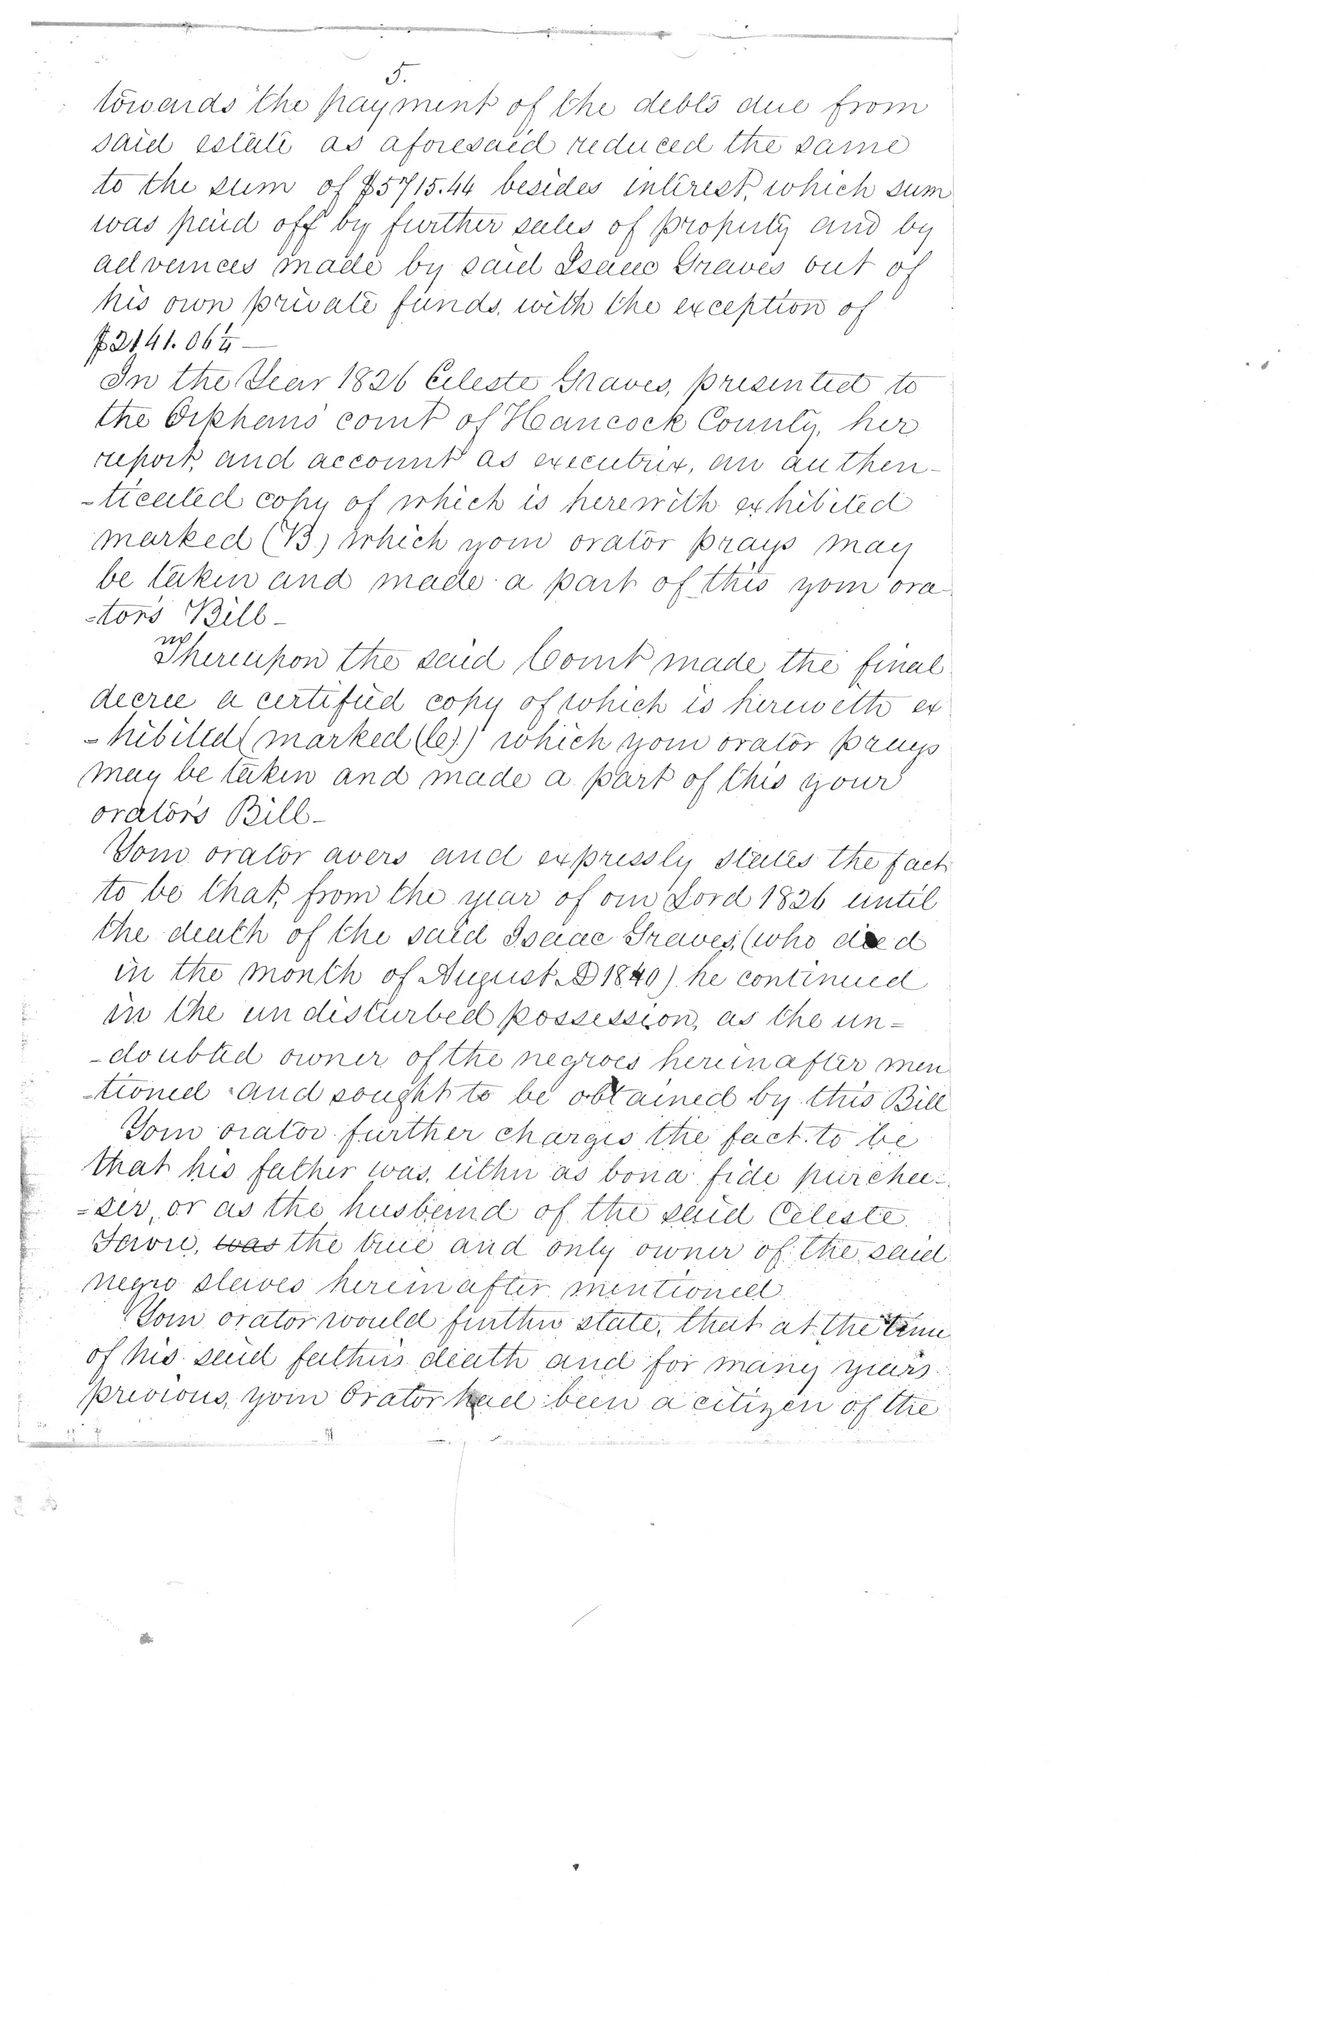 5.
towards the payment of the debts due from
said estate as aforesaid reduced the same
to the sum of $5715.44 besides interest, which sum
was paid off by further sales of property and by
advances made by said Isaac Graves out of
his own private funds, with the exception of
$2141.06¼ —
In the Year 1826 Celeste Graves, presented to
the Orphans' court of Hancock County, her
report, and account as executrix, an authen-
-ticated copy of which is herewith exhibited
marked (B) which your orator prays may
be taken and made a part of this your ora-
-tor's Bill -
Thereupon the said Court made the final
decree a certified copy of which is herewith ex
-hibited (marked (C)) which your orator prays
may be taken and made a part of this your
orator's Bill -
Your orator avers and expressly states the fact
to be that, from the year of our Lord 1826 until
the death of the said Isaac Graves, (who died
in the month of August AD 1840) he continued
in the undisturbed possession, as the un=
-doubted owner of the negroes hereinafter men
-tioned and sought to be obtained by this Bill
Your orator further charges the fact to be
that his father was, either as bona fide purcha=
=ser, or as the husband of the said Celeste
Favre, was the true and only owner of the said
negro slaves hereinafter mentioned
Your orator would further state, that at the time
of his said father's death and for many years
previous, your Orator had been a citizen of the